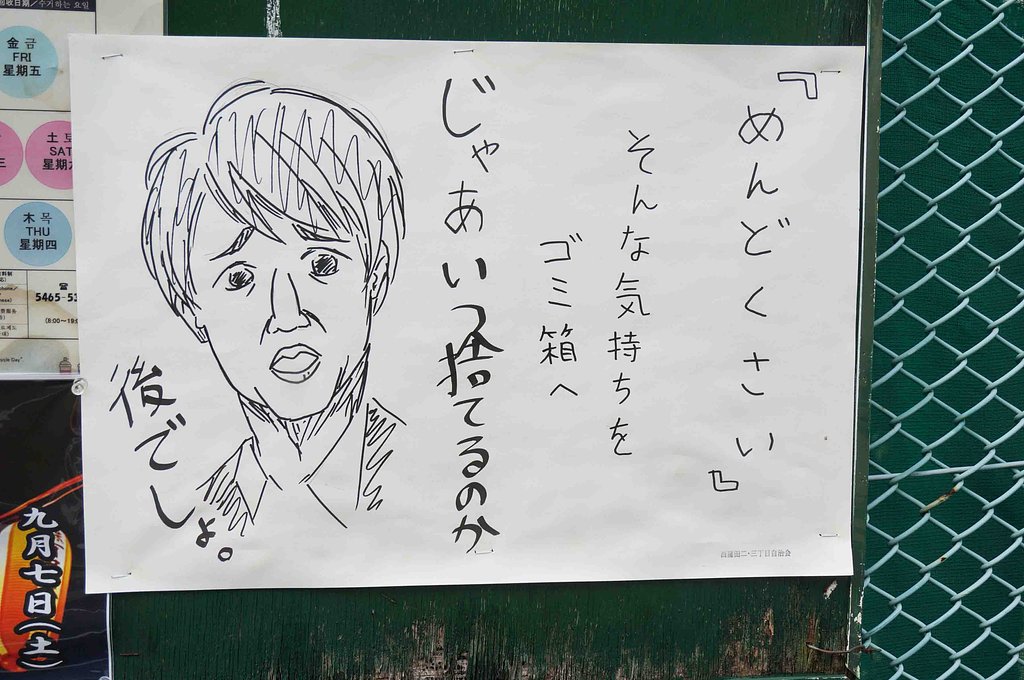 『めんどくさい』
そんな気持ちを
ゴミ箱へ
じゃあいつ捨てるのか
後でしょ。
自治会
金 금
FRI
星期五
土 토
SAT
星期六
木 목
THU
星期四
5465-53
(8:00～19:
九月七日(土)